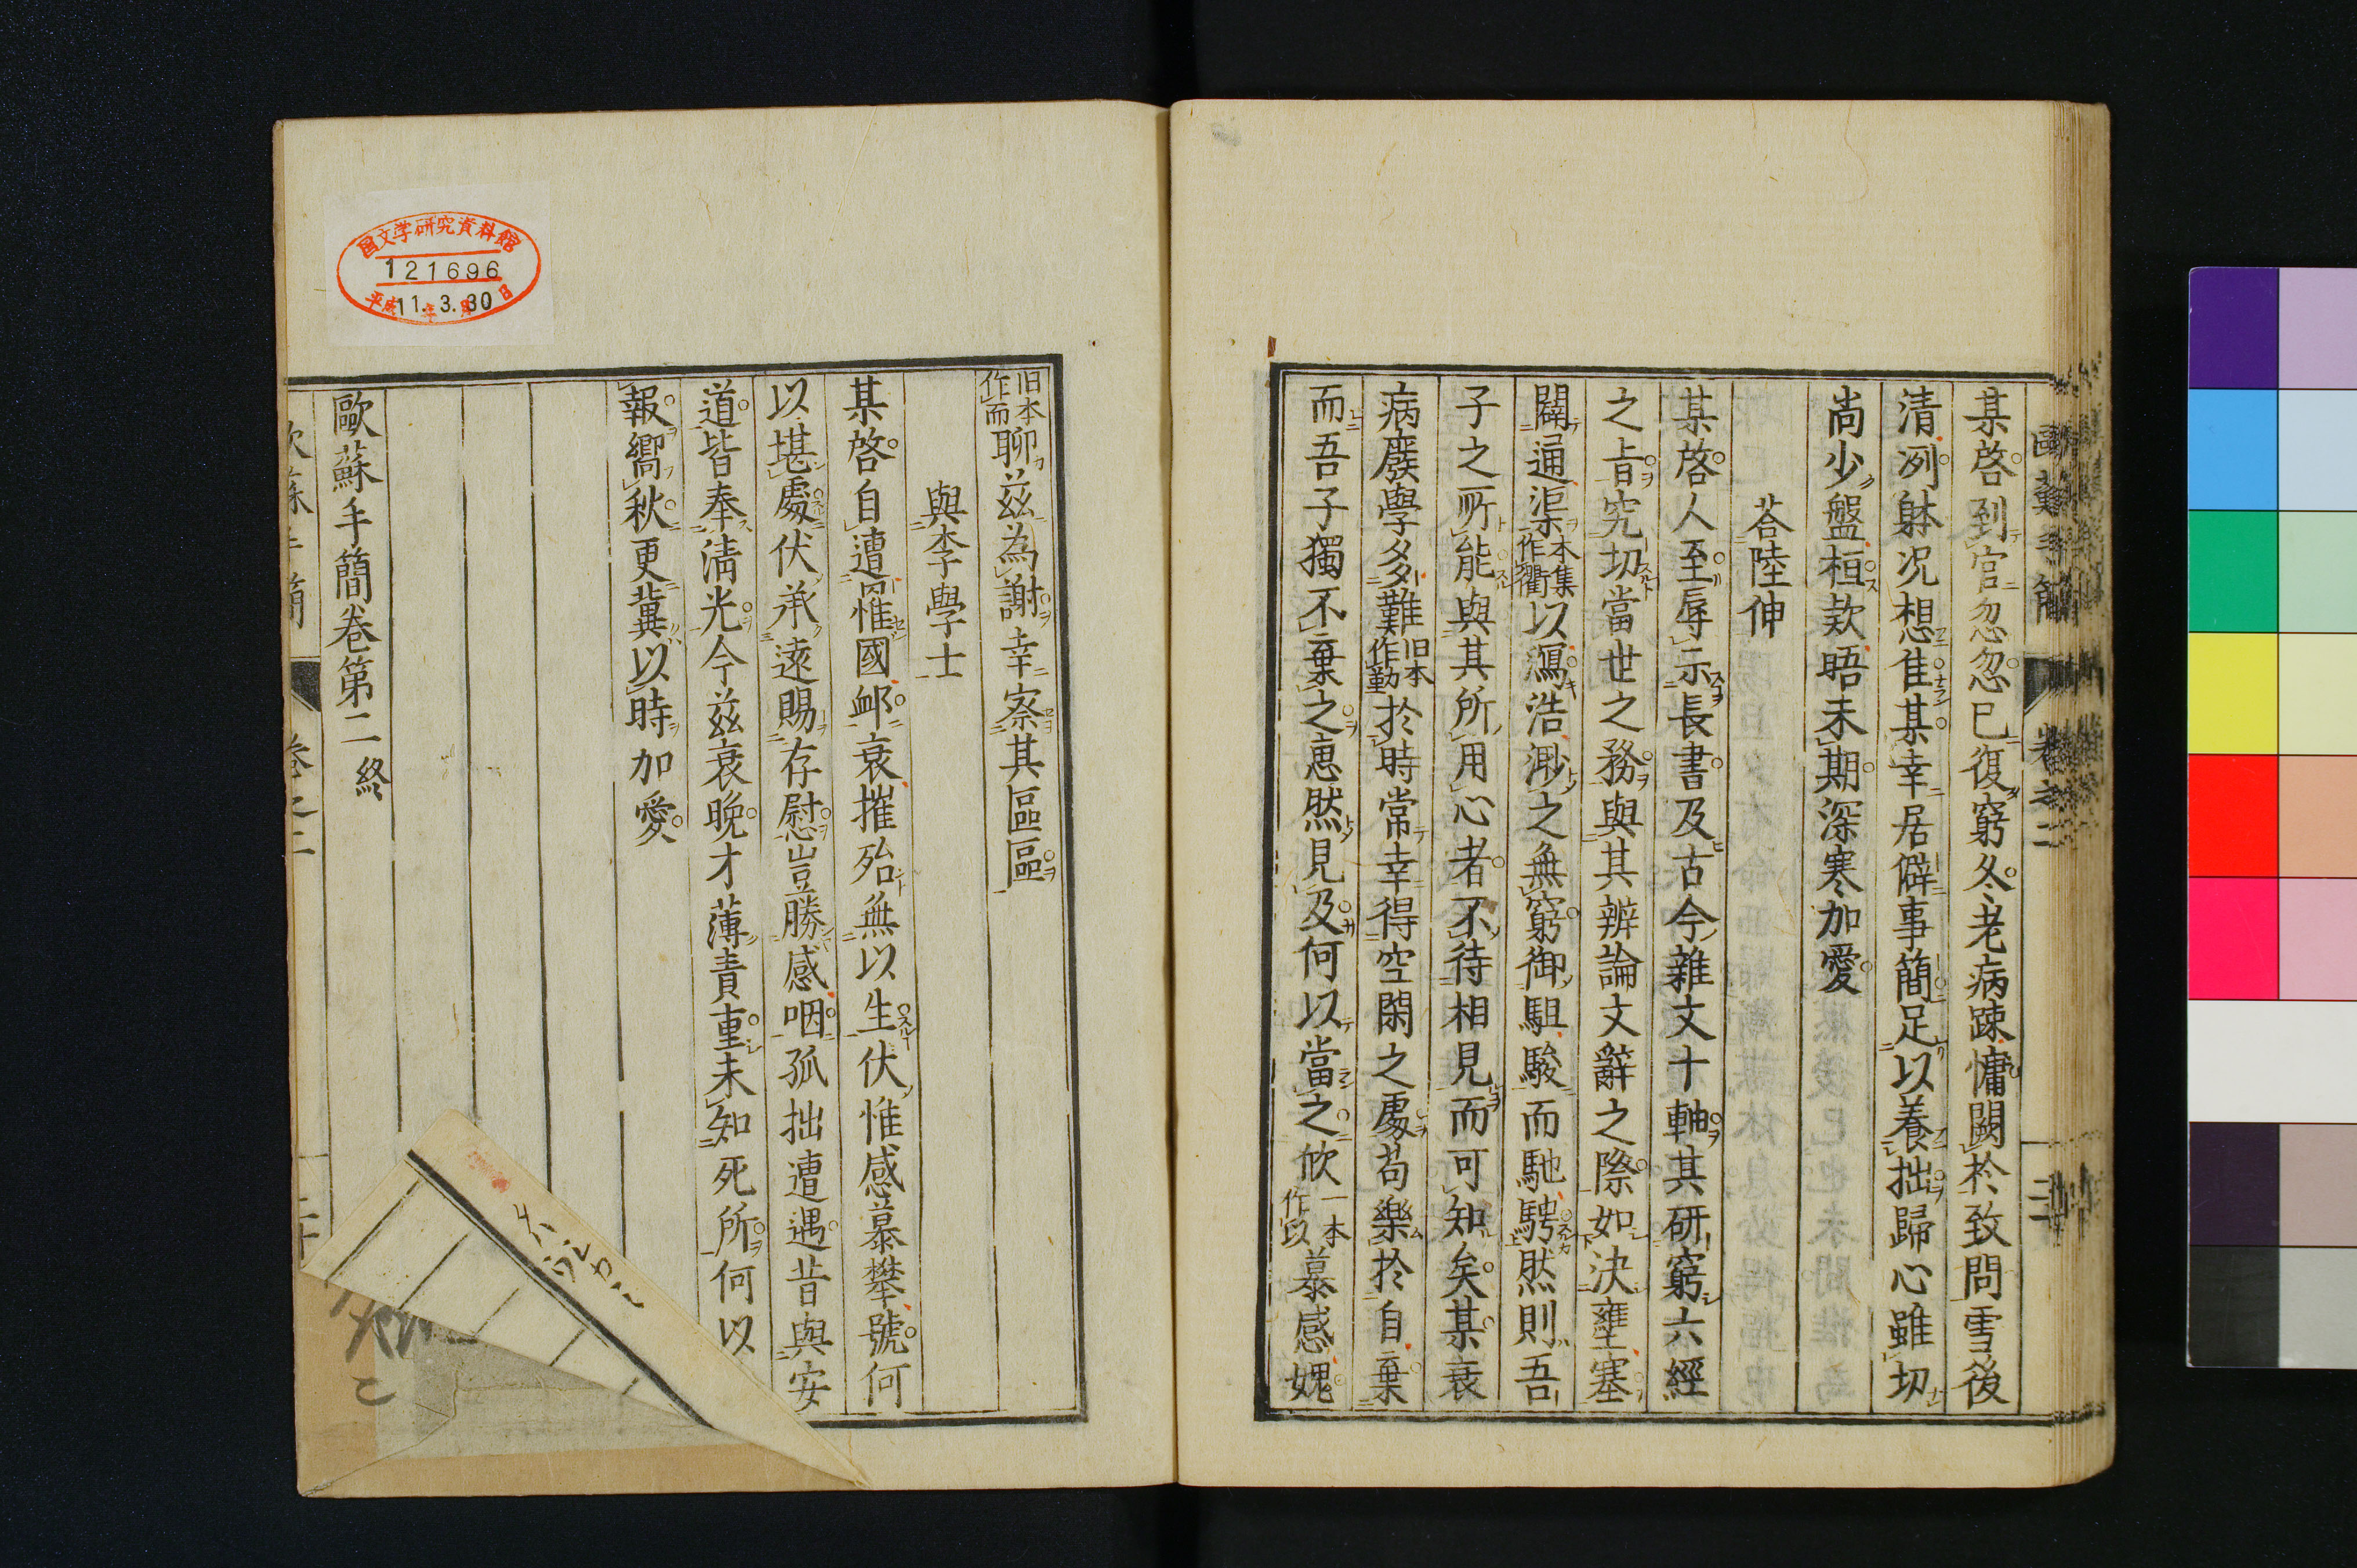 歐蘇手簡 卷之二
某啓到官忽忽已復窮冬老病踈慵闕於致問雪後
清冽躰況想佳某幸居僻事簡足以養拙歸心雖切
尚少盤桓欵晤未期深寒加愛
荅陸伸
某啓人至辱示長書及古今雜文十軸其研窮六經
之旨究切當世之務與其辨論文辭之際如決壅塞
闢通渠本集作衢以瀉浩渺之無窮御駔駿而馳騁然則吾
子之所能與其所用心者不待相見而可知矣某衰
病廢學多難旧本作勤於時常幸得空閑之處苟樂於自棄
而吾子獨不棄之惠然見及何以當之欣一本作以慕感媿
旧本作而聊玆為謝幸察其區區
與李學士
某啓自遭罔惟國卹哀摧殆無以生伏惟感慕攀號何
以堪處伏承遠賜存慰豈勝感咽孤拙遭遇昔與安
道皆奉清光今玆衰晩才薄責重未知死所何以
報嚮秋更冀以時加愛
歐蘇手簡卷第二終
卷之二
国文学研究資料館
121696
平成11年3月30日